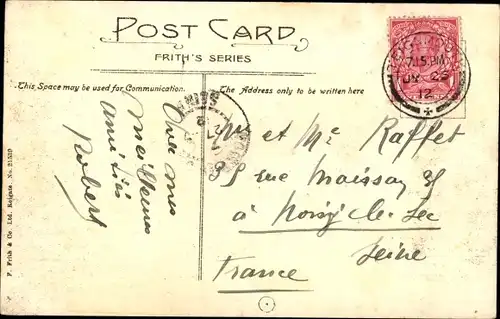 POST CARD
FRITH'S SERIES
This Space may be used for Communication.
The Address only to be written here
Avec mes
meilleures
amitiés
Robert
Mr et Me Raffet
rue
à Noisy-le-Sec
Seine
France
7.15 PM
JY 23
12
F. Frith & Co. Ltd. Reigate. No.